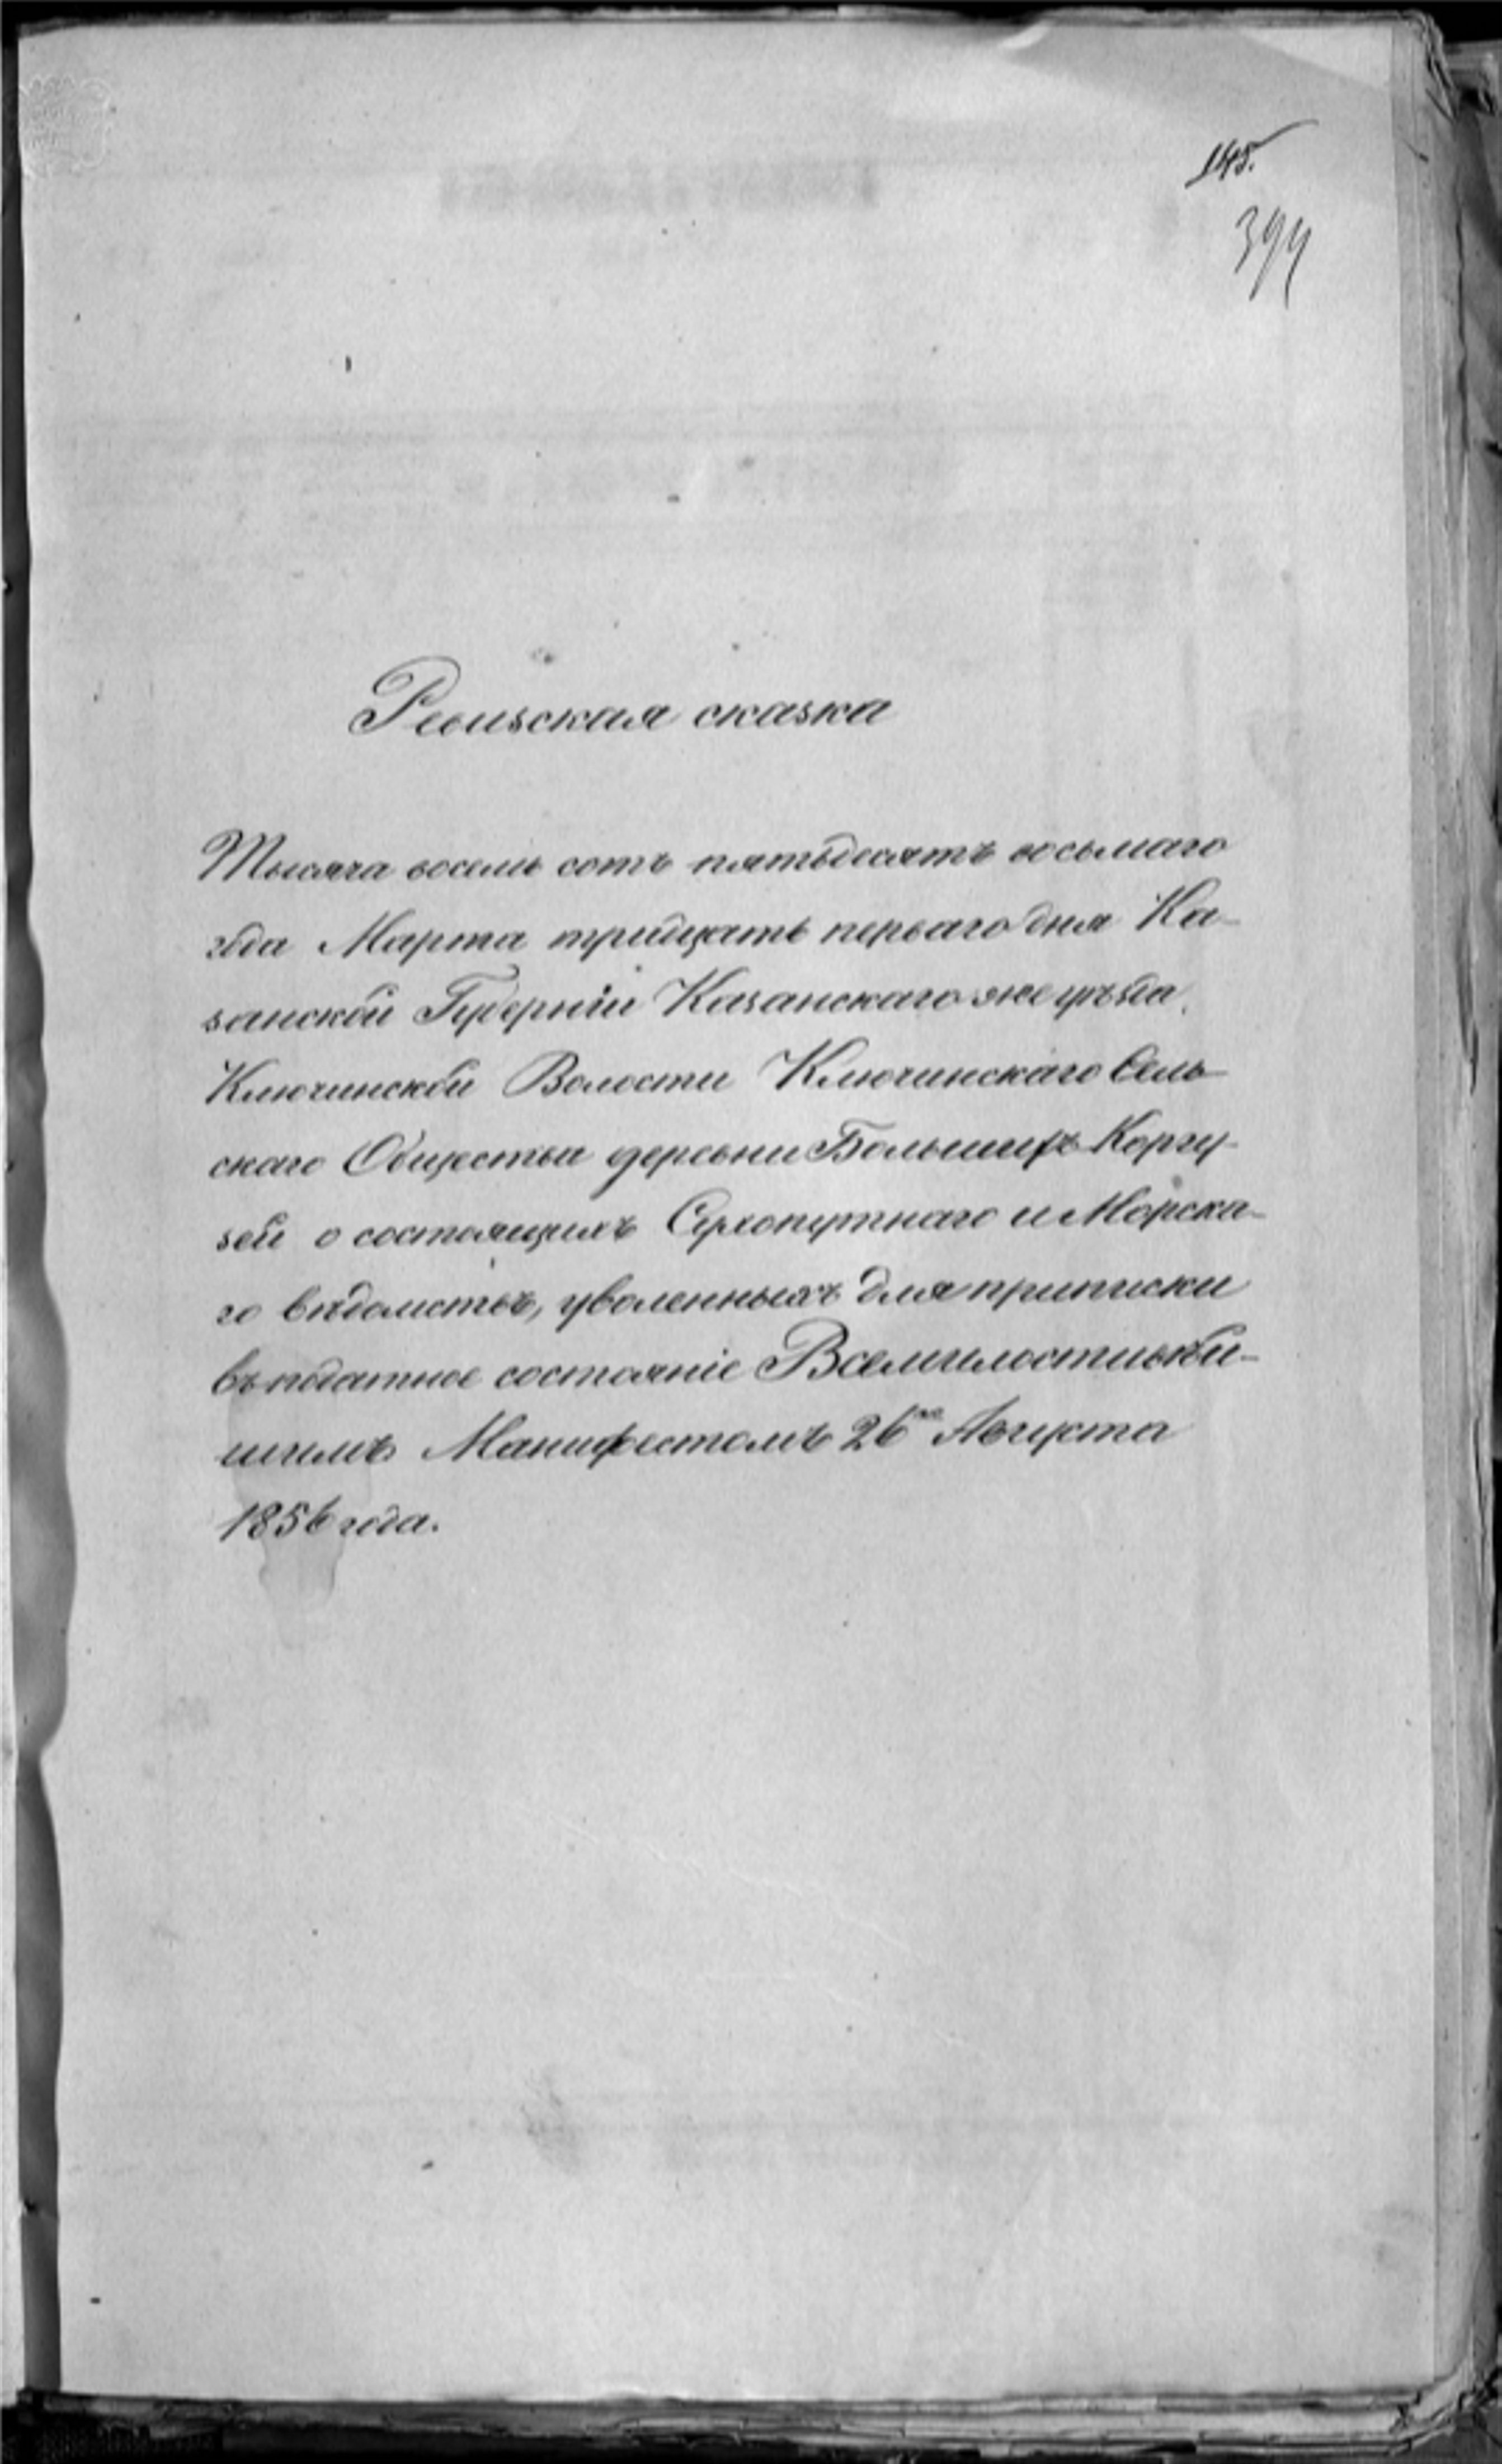 145.
394
Ревизская сказка
Тысяча восемь сотъ пятьдесятъ восьмаго
года Марта тридцать перваго дня Ка-
занской Губерніи Казанскаго же уѣзда,
Ключинской Волости Ключинскаго Сель-
скаго Общества деревни Большихъ Коргу-
зей о состоящихъ Сухопутнаго и Морска-
го вѣдомствъ, уволенныхъ для приписки
въ податное состояніе Всемилостивѣй-
шимъ Манифестомъ 26го Августа
1856 года.